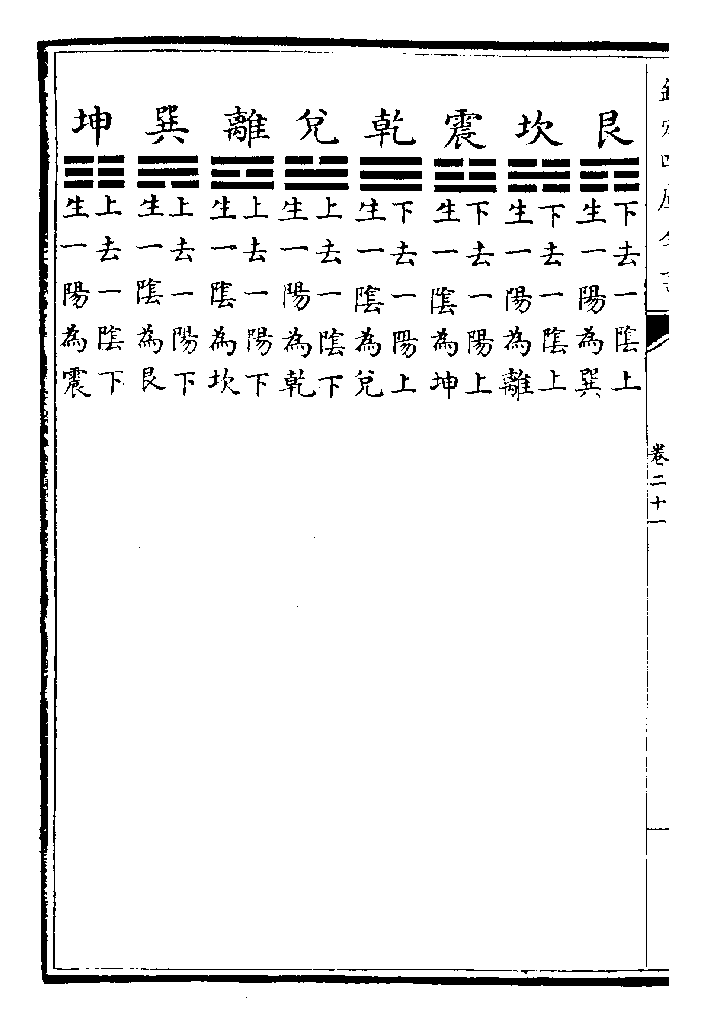 欽定四庫全書
卷二十一
艮☶
下去一陰上
生一陽為巽
坎☵
下去一陰上
生一陽為離
震☳
下去一陽上
生一陰為坤
乾☰
下去一陽上
生一陰為兌
兌☱
上去一陰下
生一陽為乾
離☲
上去一陽下
生一陰為坎
巽☴
上去一陽下
生一陰為艮
坤☷
上去一陰下
生一陽為震